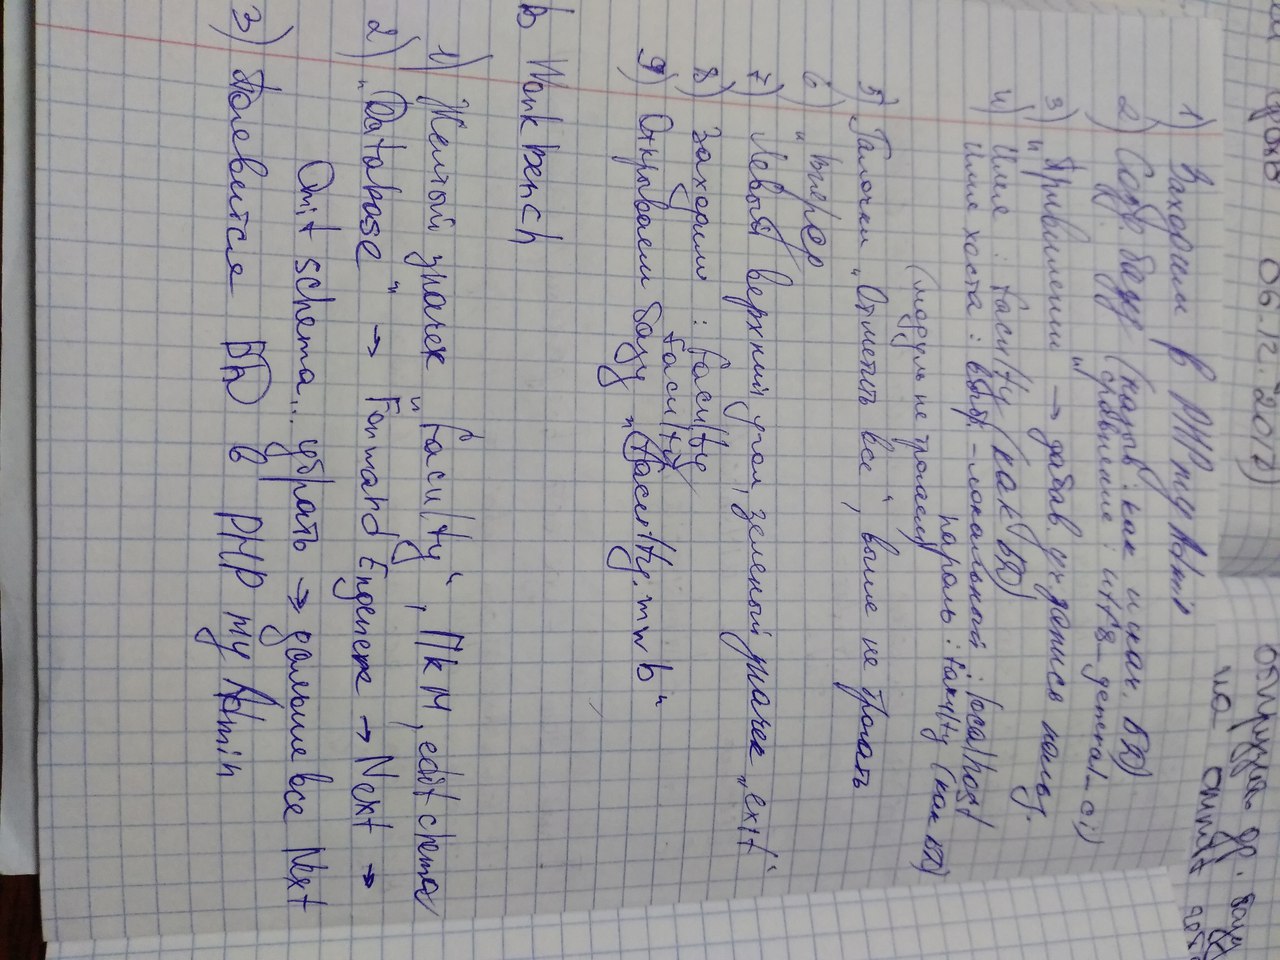 06.12.2017
1) Заходим в PHPmyAdmin
2) Созд. базу (назв. как и скач. БД)
сравнение: utf8_general_ci)
3) "Привилегии" → добав. уч. запись польз.
4) Имя: faculty (как БД)
Имя хоста: выбр-локальный: localhost
пароль: faculty (как БД)
(модуль не трогаем)
5) Галочки "Отметить все", выше не трогать
6) "Вперед
7) Левый верхний угол, зеленый значек "exit"
8) Заходим: faculty
faculty
9) Открываем базу "faculty.mwb"
В Workbench
1) Желтый значек "faculty", ПкМ, edit chema
2) "Database" → Forward Engenere → Next →
Omit schema... убрать → дальше все Next
3) Поевится БД в PHP my Admin